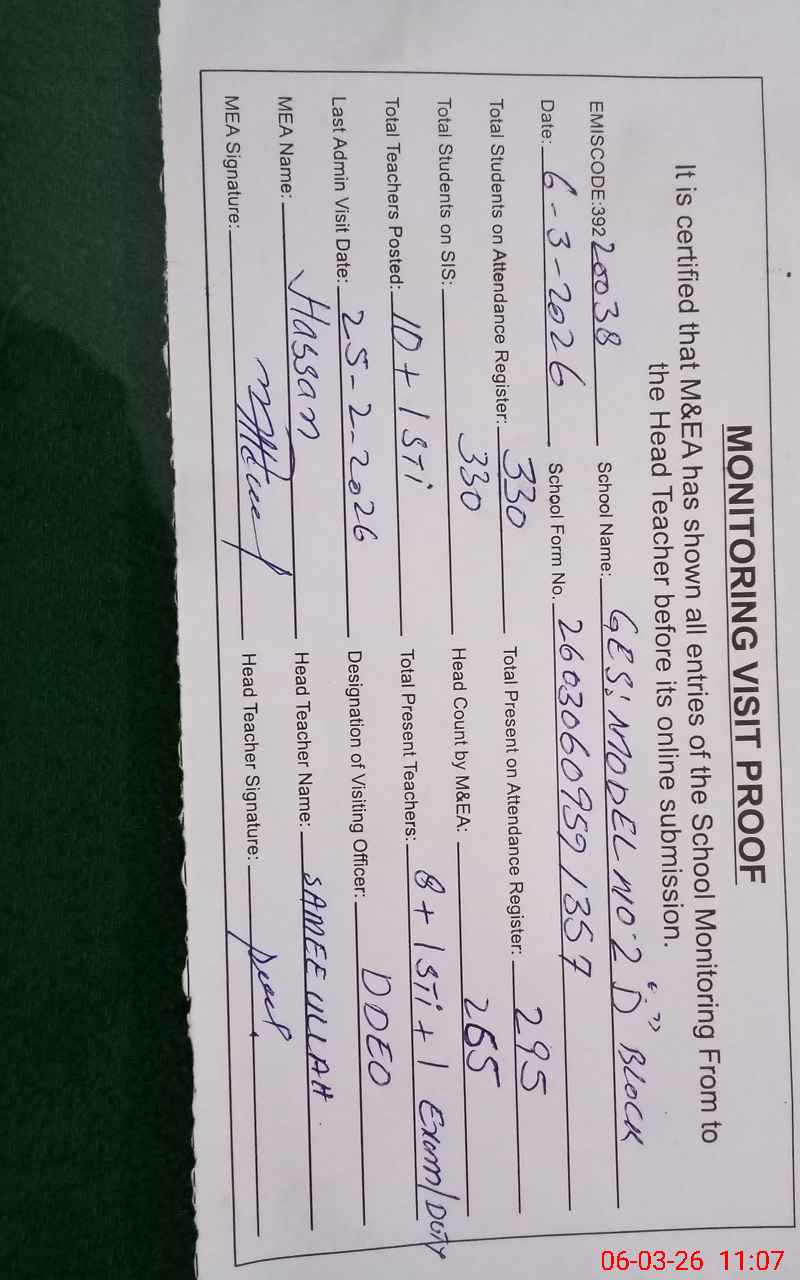 MONITORING VISIT PROOF
It is certified that M&EA has shown all entries of the School Monitoring From to
the Head Teacher before its online submission.
EMISCODE:39220038 School Name: GES: MODEL NO.2 "D" BLOCK
Date: 6-3-2026 School Form No. 26030609591357
Total Students on Attendance Register: 330 Total Present on Attendance Register: 295
Total Students on SIS: 330 Head Count by M&EA: 265
Total Teachers Posted: 10 + 1 STi Total Present Teachers: 8 + 1 STi + 1 Exam/DUTY
Last Admin Visit Date: 25-2-2026 Designation of Visiting Officer: DDEO
MEA Name: Hassan Head Teacher Name: SAMEEULLAH
MEA Signature: Head Teacher Signature:
06-03-26 11:07